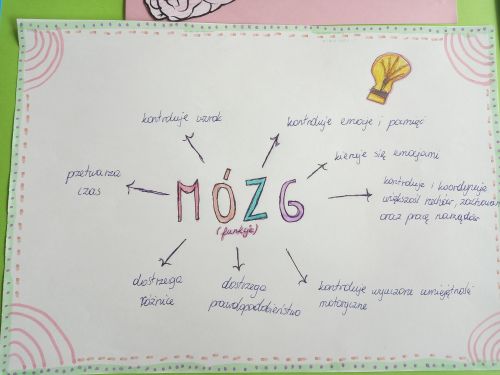 kontroluje wzrok
kontroluje emocje i pamięć
kieruje się emocjami
przetwarza
czas
kontroluje i koordynuje
większość ruchów, zachowań
oraz pracę narządów
MÓZG
(funkcje)
dostrzega
różnice
dostrzega
prawdopodobieństwo
kontroluje wyuczone umiejętności
motoryczne